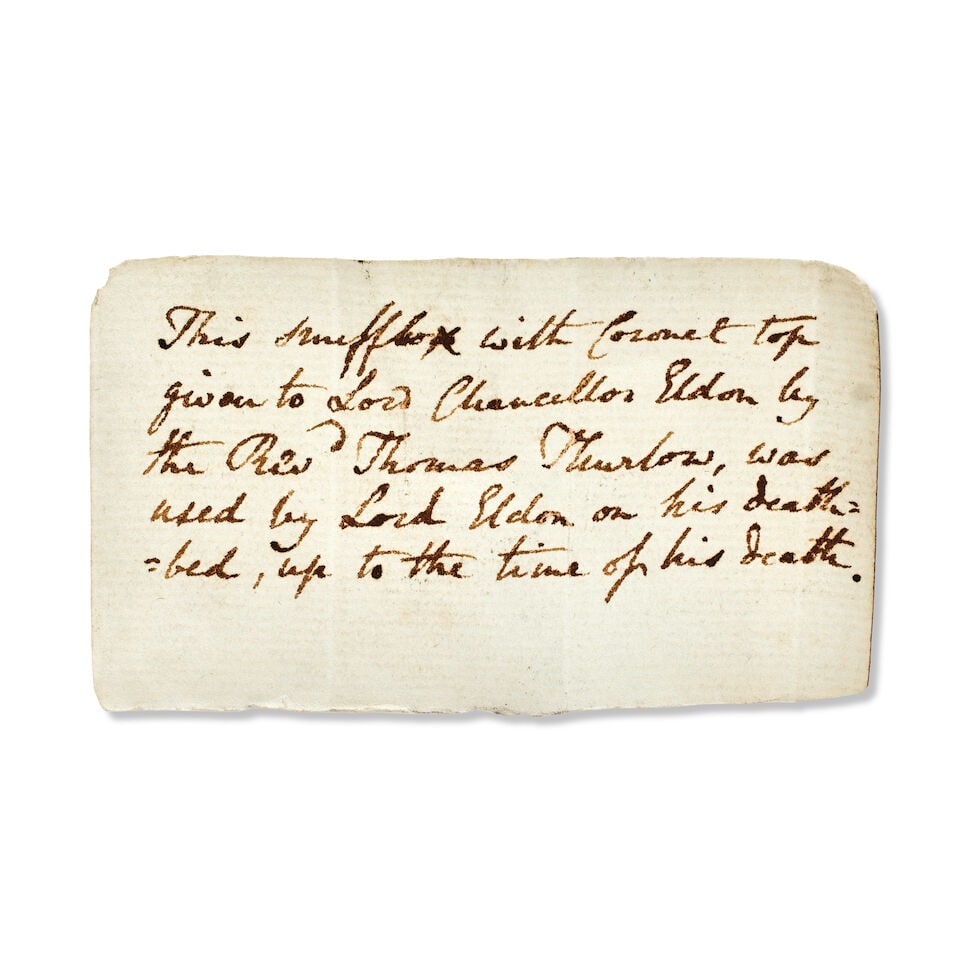 This snuffbox with Coronet top
given to Lord Chancellor Eldon by
the Revd Thomas Thurlow, was
used by Lord Eldon on his death=
=bed, up to the time of his death.